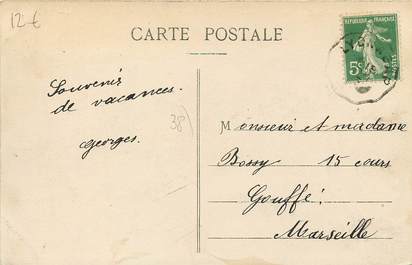 12 €
CARTE POSTALE
RÉPUBLIQUE FRANÇAISE
5c
POSTES
Souvenir
de vacances.
Georges.
38
Monsieur et madame
Bossy 15 cours
Gouffé.
Marseille